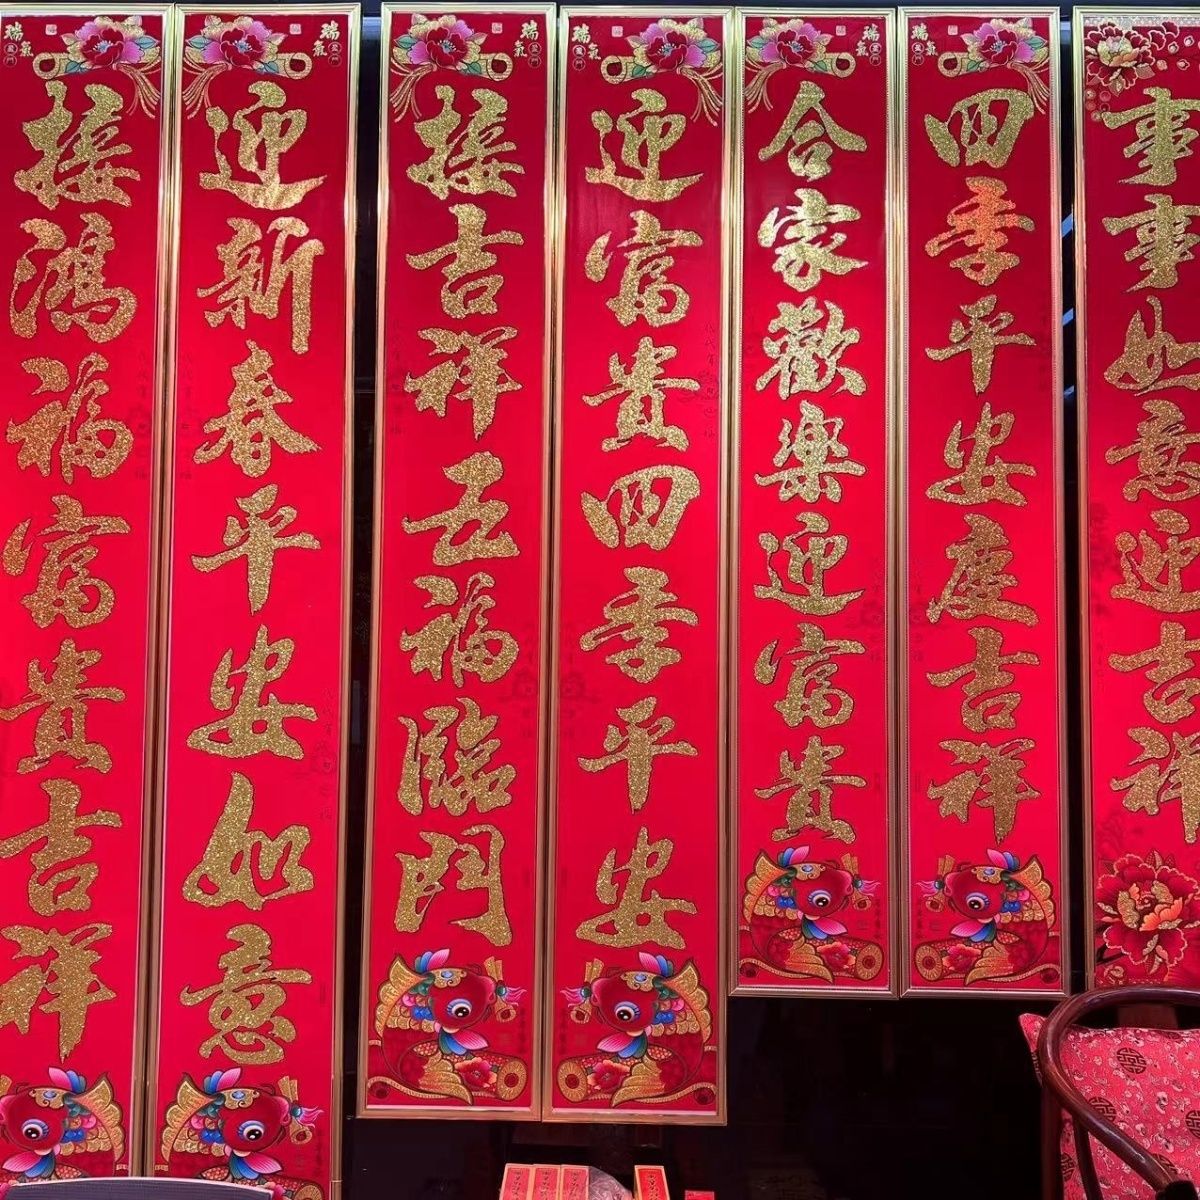 瑞氣盈門
接鴻福富貴吉祥
瑞氣盈門
迎新春平安如意
瑞氣盈門
接吉祥五福臨門
瑞氣盈門
迎富貴四季平安
瑞氣盈門
合家歡樂迎富貴
瑞氣盈門
四季平安慶吉祥
事事如意迎吉祥